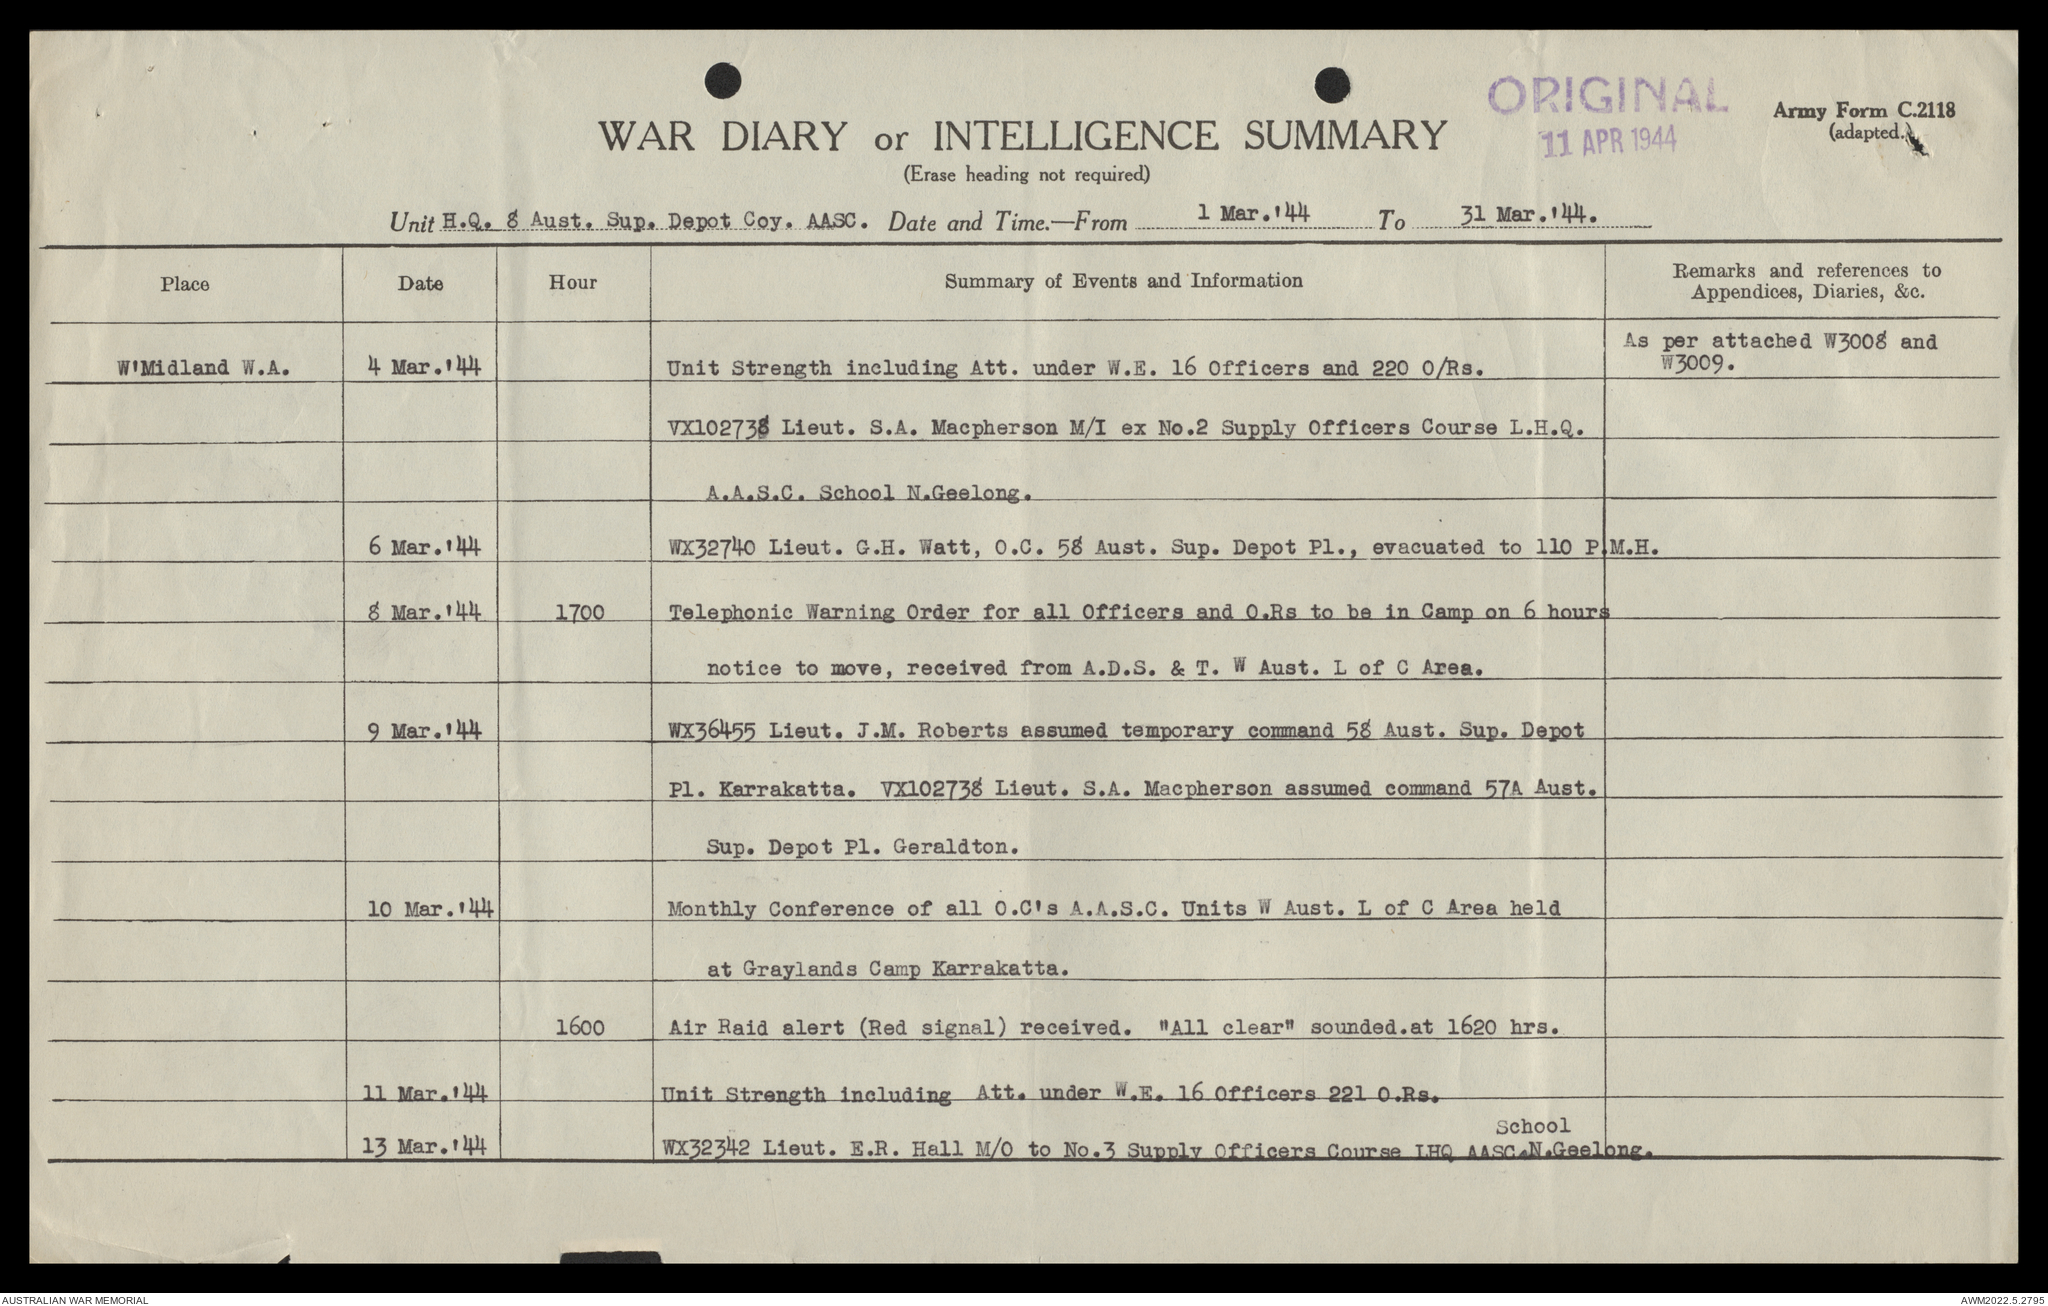 ORIGINAL
11 APR 1944
Army Form C.2118
(adapted.)
WAR DIARY or INTELLIGENCE SUMMARY
(Erase heading not required)
Unit H.Q. 8 Aust. Sup. Depot Coy. AASC. Date and Time.—From 1 Mar.'44 To 31 Mar.'44.
Place Date Hour Summary of Events and Information Remarks and references to
Appendices, Diaries, &c.
As per attached W3008 and
W3009.
W'Midland W.A. 4 Mar.'44 Unit Strength including Att. under W.E. 16 Officers and 220 O/Rs.
VX102738 Lieut. S.A. Macpherson M/I ex No.2 Supply Officers Course L.H.Q.
A.A.S.C. School N.Geelong.
6 Mar.'44 WX32740 Lieut. G.H. Watt, O.C. 58 Aust. Sup. Depot Pl., evacuated to 110 P.M.H.
8 Mar.'44 1700 Telephonic Warning Order for all Officers and O.Rs to be in Camp on 6 hours
notice to move, received from A.D.S. & T. W Aust. L of C Area.
9 Mar.'44 WX36455 Lieut. J.M. Roberts assumed temporary command 58 Aust. Sup. Depot
Pl. Karrakatta. VX102738 Lieut. S.A. Macpherson assumed command 57A Aust.
Sup. Depot Pl. Geraldton.
10 Mar.'44 Monthly Conference of all O.C's A.A.S.C. Units W Aust. L of C Area held
at Graylands Camp Karrakatta.
1600 Air Raid alert (Red signal) received. "All clear" sounded.at 1620 hrs.
11 Mar.'44 Unit Strength including Att. under W.E. 16 Officers 221 O.Rs.
School
13 Mar.'44 WX32342 Lieut. E.R. Hall M/O to No.3 Supply Officers Course LHQ AASC.N.Geelong.
AUSTRALIAN WAR MEMORIAL
AWM2022.5.2795